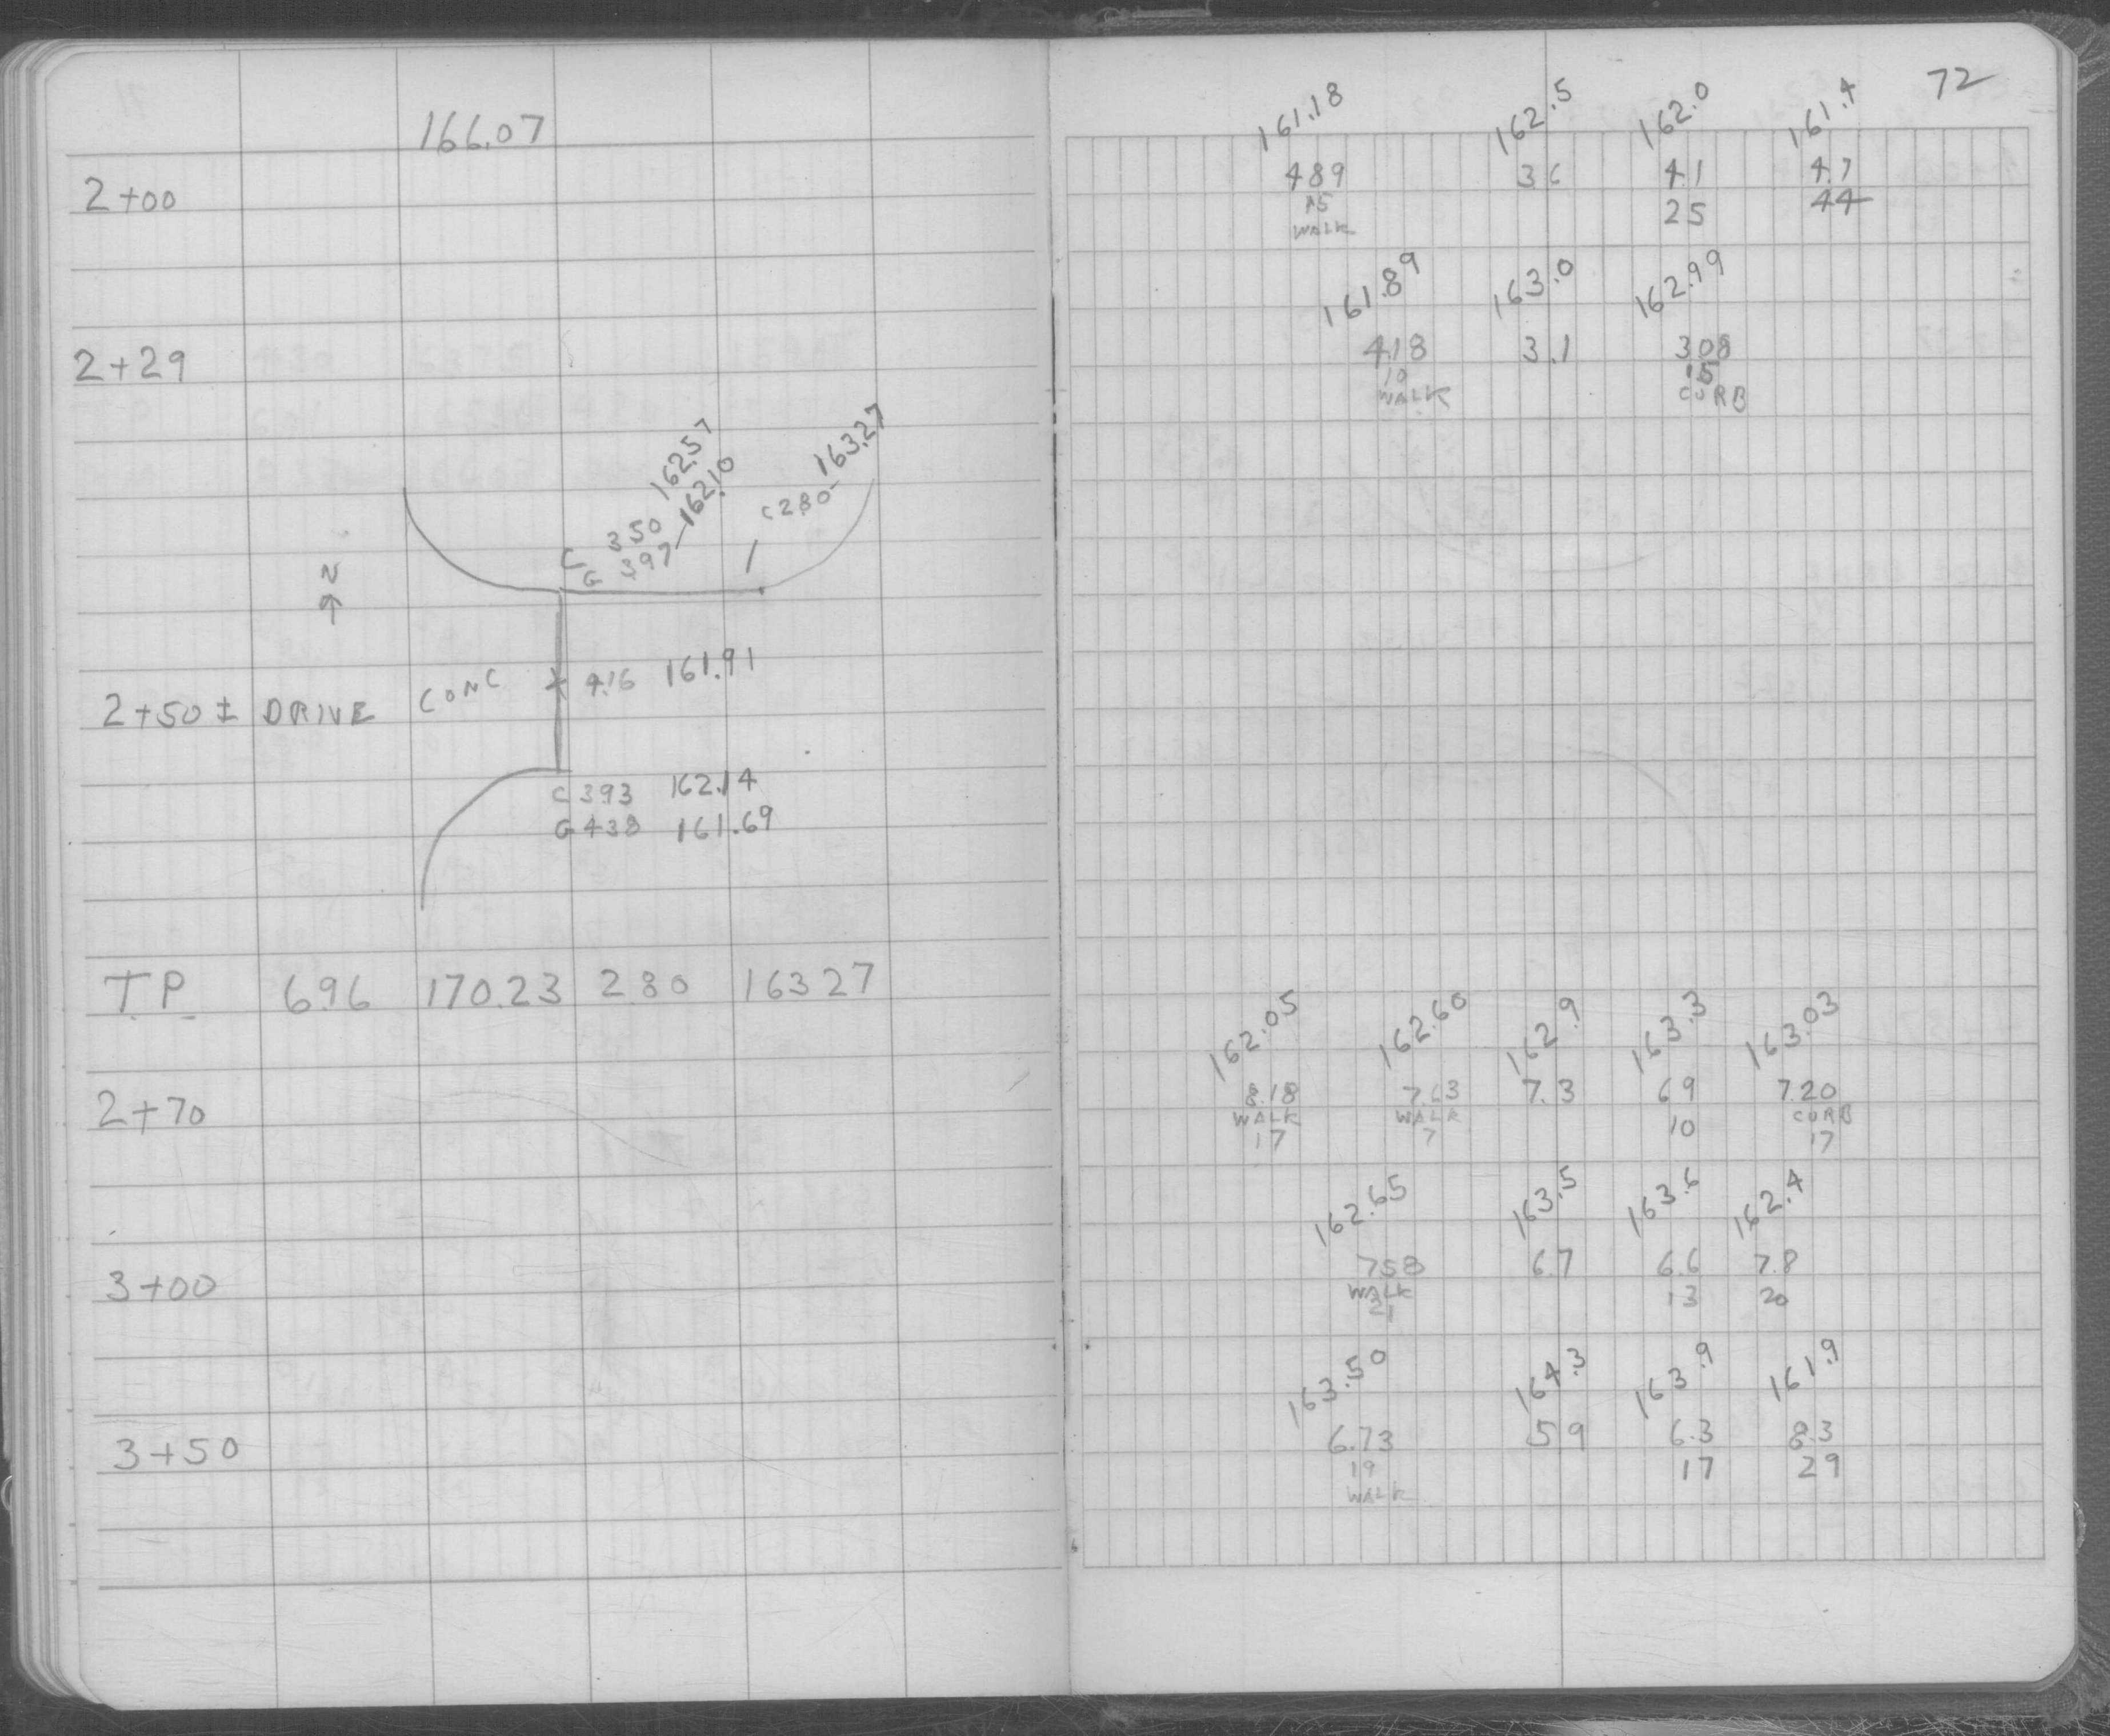 166.07
2+00
2+29
162.57
162.10
163.27
C 3.50
G 3.97
C 2.80
N
2+50± DRIVE CONC 4.16 161.91
C 3.93 162.14
G 4.38 161.69
T.P. 6.96 170.23 2.80 163.27
2+70
3+00
3+50
72
161.18 162.5 162.0 161.4
4.89 3.6 4.1 4.7
15 25 44
WALK
161.89 163.0 162.99
4.18 3.1 3.08
10 15
WALK CURB
162.05 162.60 162.9 163.3 163.03
8.18 7.63 7.3 6.9 7.20
WALK WALK CURB
17 7 10 17
162.65 163.5 163.6 162.4
7.58 6.7 6.6 7.8
WALK 13 20
21
163.50 164.3 163.9 161.9
6.73 5.9 6.3 8.3
19 17 29
WALK